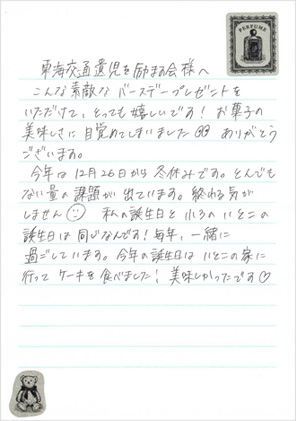 PERFUME
東海交通遺児を励ます会様へ
こんな素敵なバースデープレゼントを
いただけて、とっても嬉しいです! お菓子の
美味しさに目覚めてしまいました ありがとう
ございます。
今年は12月26日から冬休みです。とんでも
ない量の課題が出ています。終わる気が
しません 私の誕生日と いとこの
誕生日は同じなんです! 毎年、一緒に
過ごしています。今年の誕生日は いとこの家に
行って ケーキを食べました! 美味しかったです♡